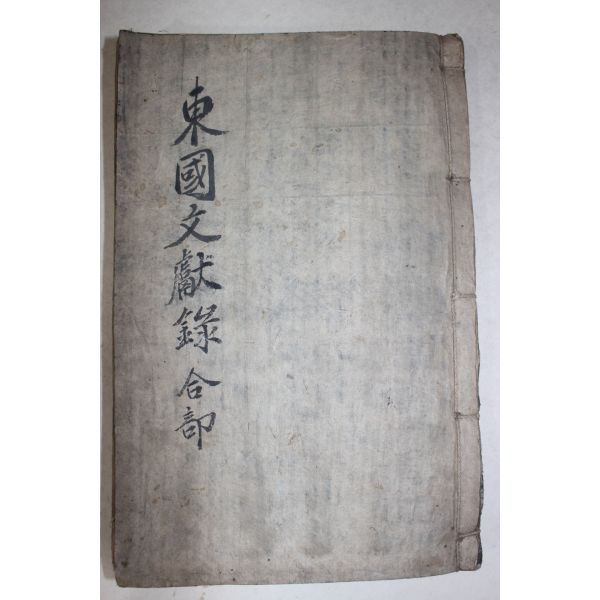 東國文獻錄合部